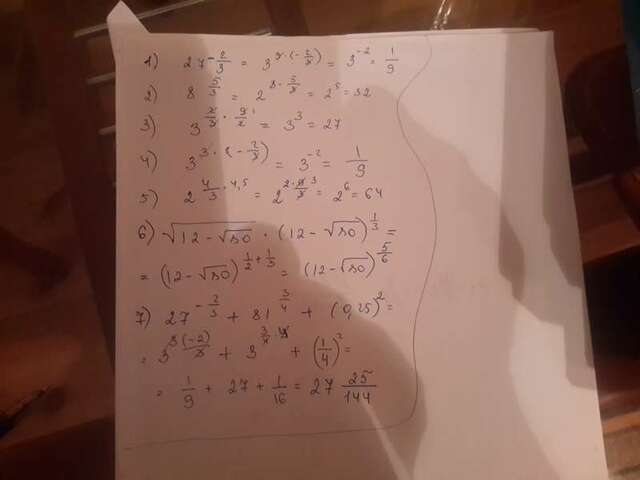 1) 27^(-2/3) = 3^(3·(-2/3)) = 3^(-2) = 1/9
2) 8^(5/3) = 2^(3·5/3) = 2^5 = 32
3) 3^(2/3 · 9/2) = 3^3 = 27
4) 3^(3·(-2/3)) = 3^(-2) = 1/9
5) 2^(4/3 · 4,5) = 2^(2·9/3) = 2^6 = 64
6) √(12-√10) · (12-√10)^(1/3) =
= (12-√10)^(1/2+1/3) = (12-√10)^(5/6)
7) 27^(-2/3) + 81^(3/4) + (0,25)^2 =
= 3^(3(-2)/3) + 3^(3/4·4) + (1/4)^2 =
= 1/9 + 27 + 1/16 = 27 25/144